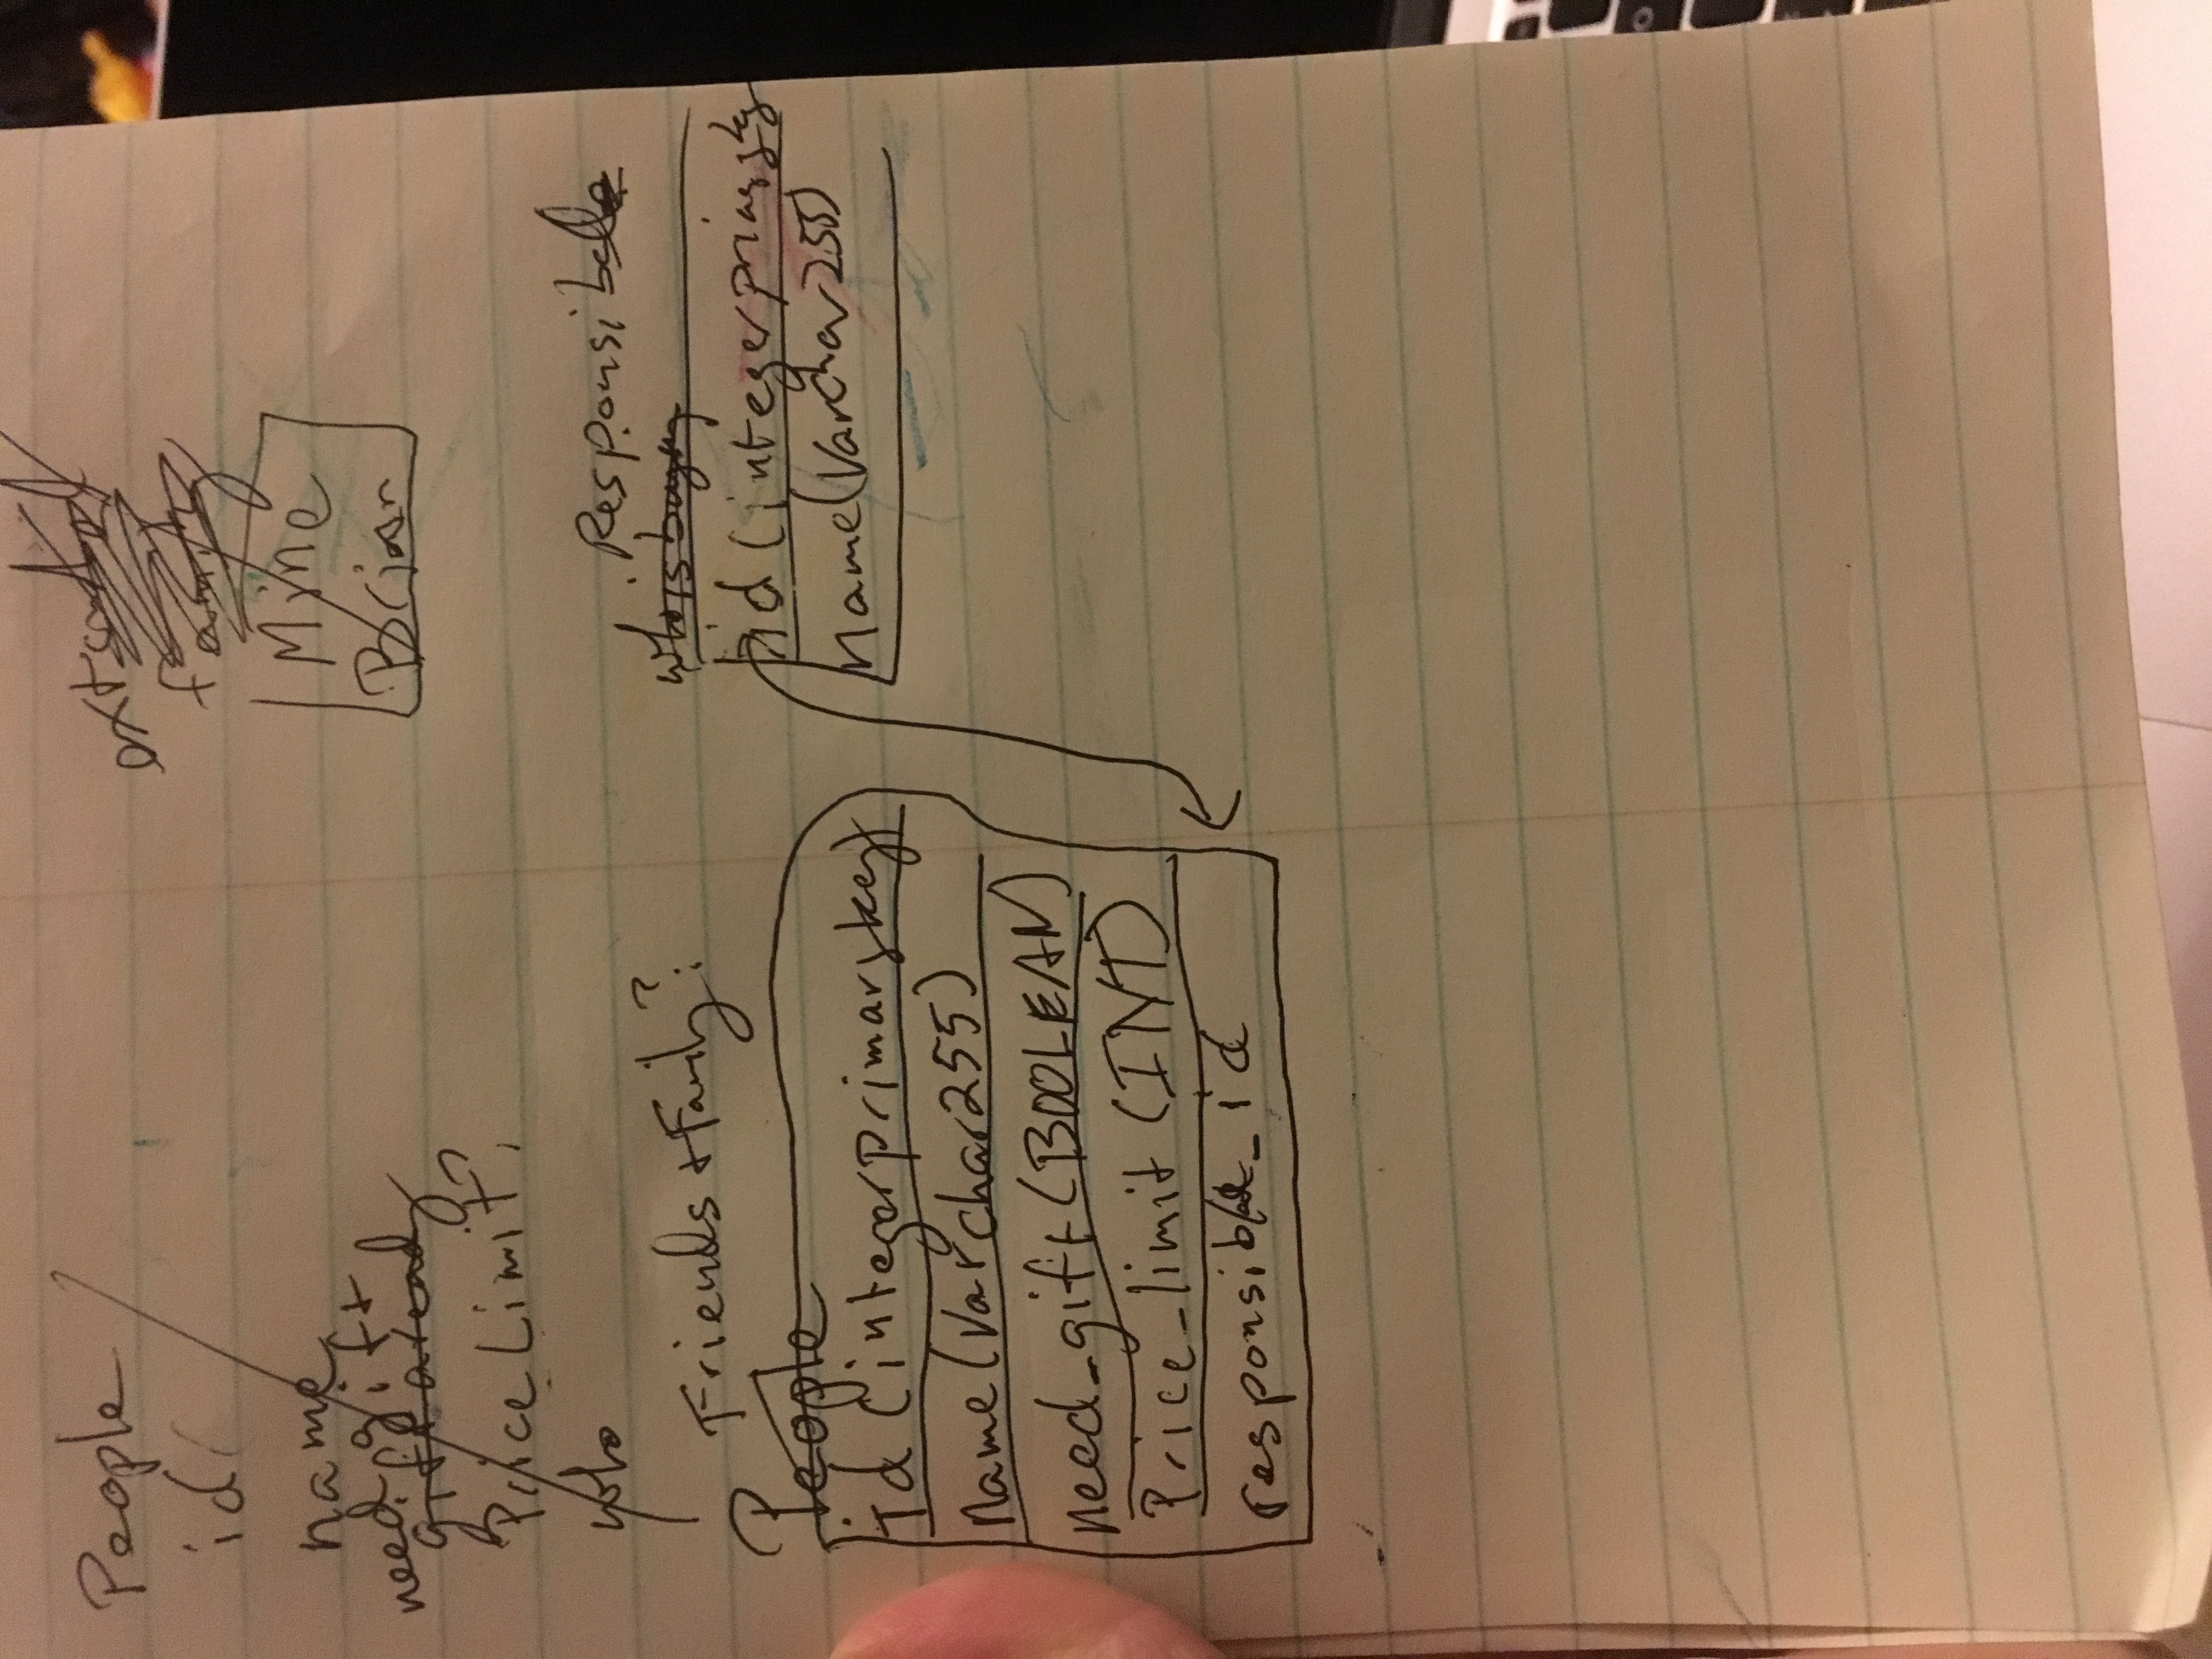 People
id (
name
need gift
gift aready
Price Limit?
who
extended
family
Mine
Brian
Friends + Family?
People
id (integer primary key)
name (Varchar 255)
need_gift (BOOLEAN)
Price_limit (INT)
responsible_id
Responsible
who is buying
id (integer primary key
name (Varchar 255)